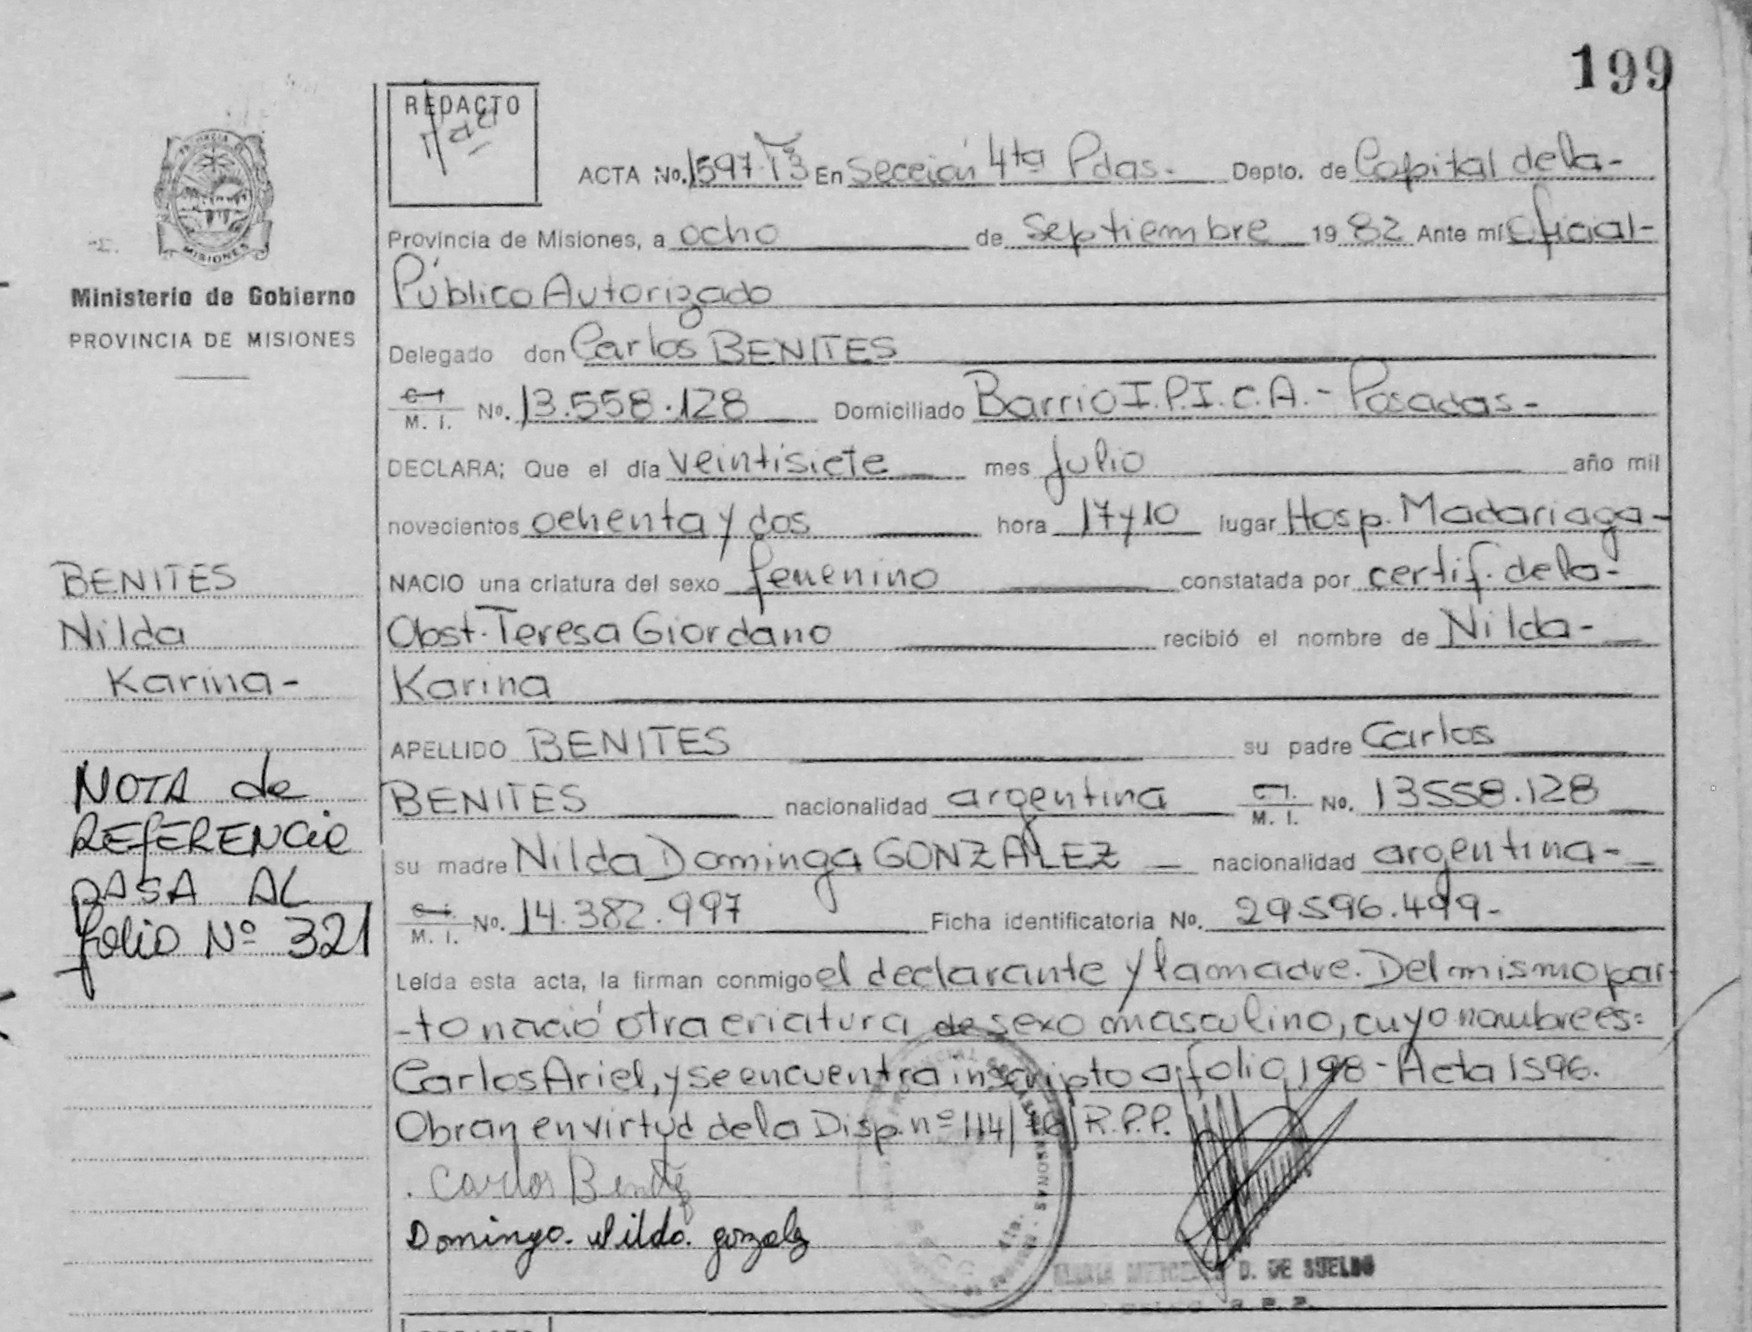 199
REDACTO
ACTA No. 1597 Tº3 En Sección 4ta Pdas.- Depto. de Capital de la-
Provincia de Misiones, a ocho de Septiembre 1982 Ante mí Oficial-
Público Autorizado
Delegado don Carlos BENITES
C.I. M. I. No. 13.558.128 Domiciliado Barrio I.P.I.C.A.- Posadas-
DECLARA; Que el día veintisiete mes Julio año mil
novecientos ochenta y dos hora 17 y 10 lugar Hosp. Madariaga-
NACIO una criatura del sexo femenino constatada por certif. de la-
Obst. Teresa Giordano recibió el nombre de Nilda-
Karina
APELLIDO BENITES su padre Carlos
BENITES nacionalidad argentina C.I. M. I. No. 13558.128
su madre Nilda Dominga GONZALEZ nacionalidad argentina-
C.I. M. I. No. 14.382.997 Ficha identificatoria No. 29596.499-
Leída esta acta, la firman conmigo el declarante y la madre. Del mismo par
-to nació otra criatura de sexo masculino, cuyo nombre es:
Carlos Ariel, y se encuentra inscripto a folio 198- Acta 1596.
Obran en virtud de la Disp. nº 114/76/R.P.P.
Carlos Benitez
Dominga Nilda gonzalez
MARIA MERCEDES D. DE SUELDO
PROVINCIA DE MISIONES
Ministerio de Gobierno
PROVINCIA DE MISIONES
BENITES
Nilda
Karina-
NOTA de
REFERENCIA
PASA AL
folio Nº 321
REDACTO